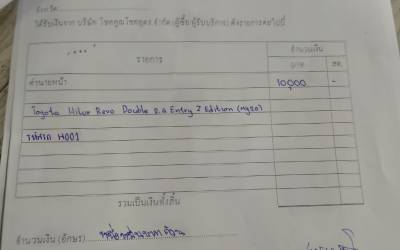 จังหวัด
ได้รับเงินจาก บริษัท โชคคูณโชคอุดร จำกัด (ผู้ซื้อ/ผู้รับบริการ) ดังรายการต่อไปนี้
รายการ จำนวนเงิน
บาท สต.
ค่านายหน้า 10,000 -
Toyota Hilux Revo Double 2.4 Entry Z Edition (My20)
รหัสรถ H001
รวมเป็นเงินทั้งสิ้น
จำนวนเงิน (อักษร) หนึ่งหมื่นบาทถ้วน